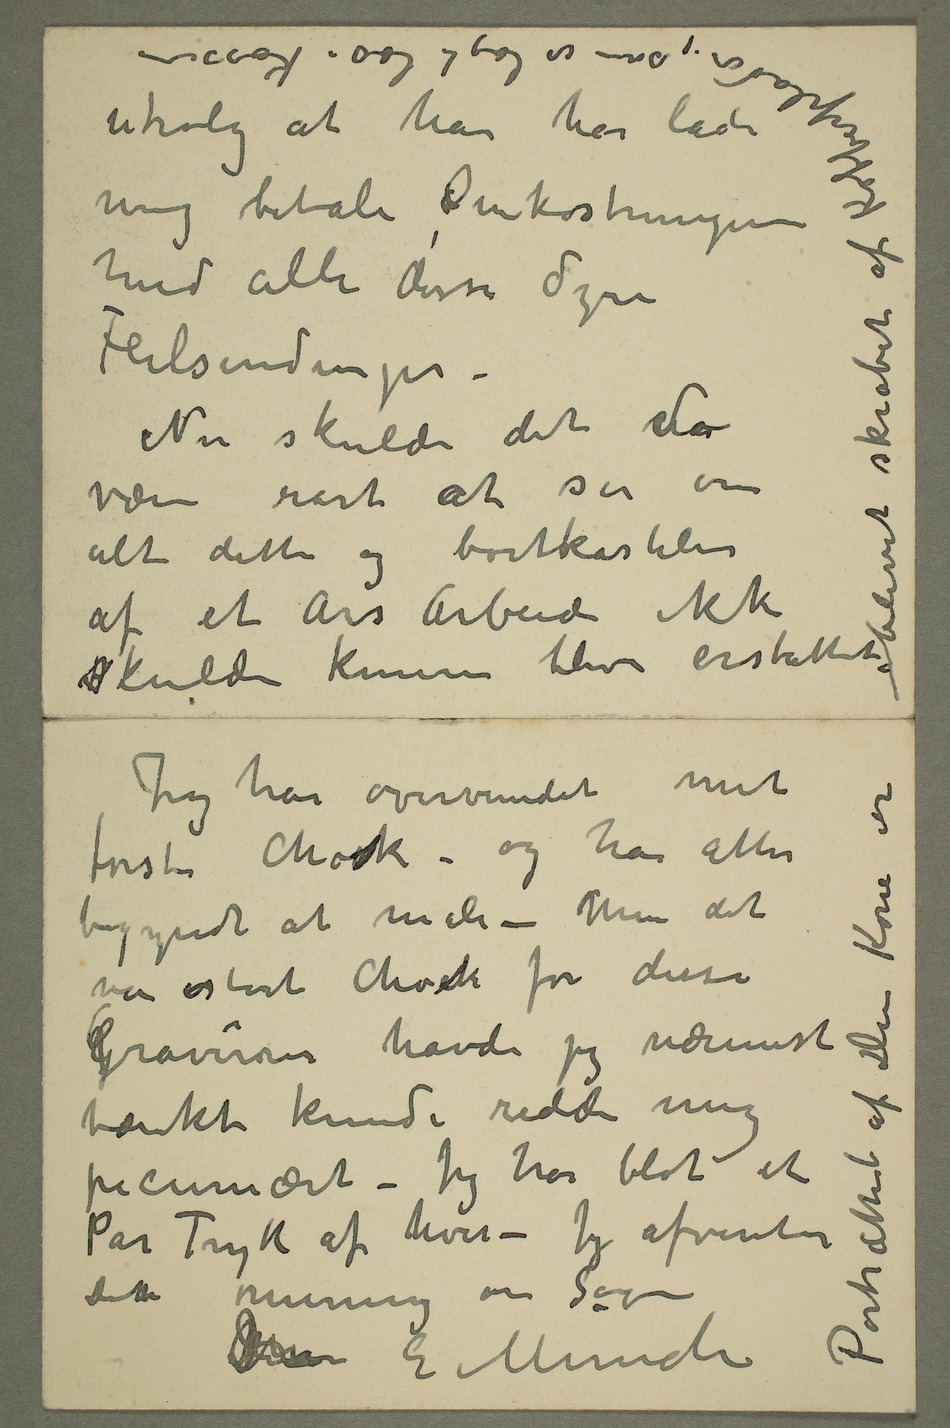 utrolig at han har ladet
mig betale Omkostningerne
med alle disse dyre
Feilsendinger –
Nu skulde det da
være rart at se om
alt dette og bortkastelse
af et Års Arbeide ikke
skulde kunne blive erstattet
Jeg har overvundet mit
første Chock – og har atter
begyndt at male – Men det
var stort Chock for disse
Gravürer havde jeg nærmest
tænkt kunde redde mig
pecuniært – Jeg har blot et
Par Tryk af hver – Jeg afventer
Dette mening om Sagen
E Munch
Portrættet af Din Kone er
blevet skrabet af